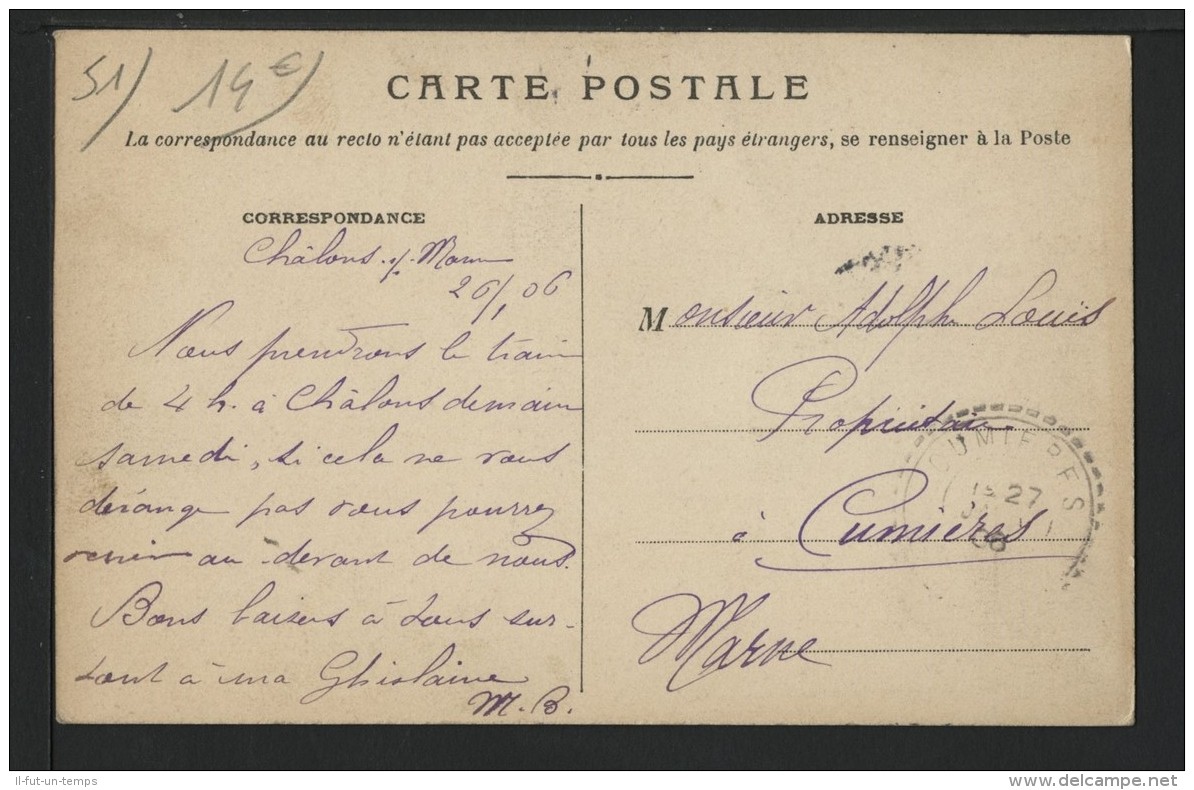 51) 14€)
CARTE POSTALE
La correspondance au recto n'étant pas acceptée par tous les pays étrangers, se renseigner à la Poste
CORRESPONDANCE
Châlons s/ Marne
26/1 06
Nous prendrons le train
de 4 h. à Châlons demain
samedi, si cela ne vous
dérange pas vous pourrez
venir au devant de nous.
Bons baisers à tous sur-
tout à ma Ghislaine
M. B.
ADRESSE
Monsieur Adolphe Louis
Propriétaire
à Cumières
Marne
CUMIERES
27
06
Il-fut-un-temps
delcampe.net